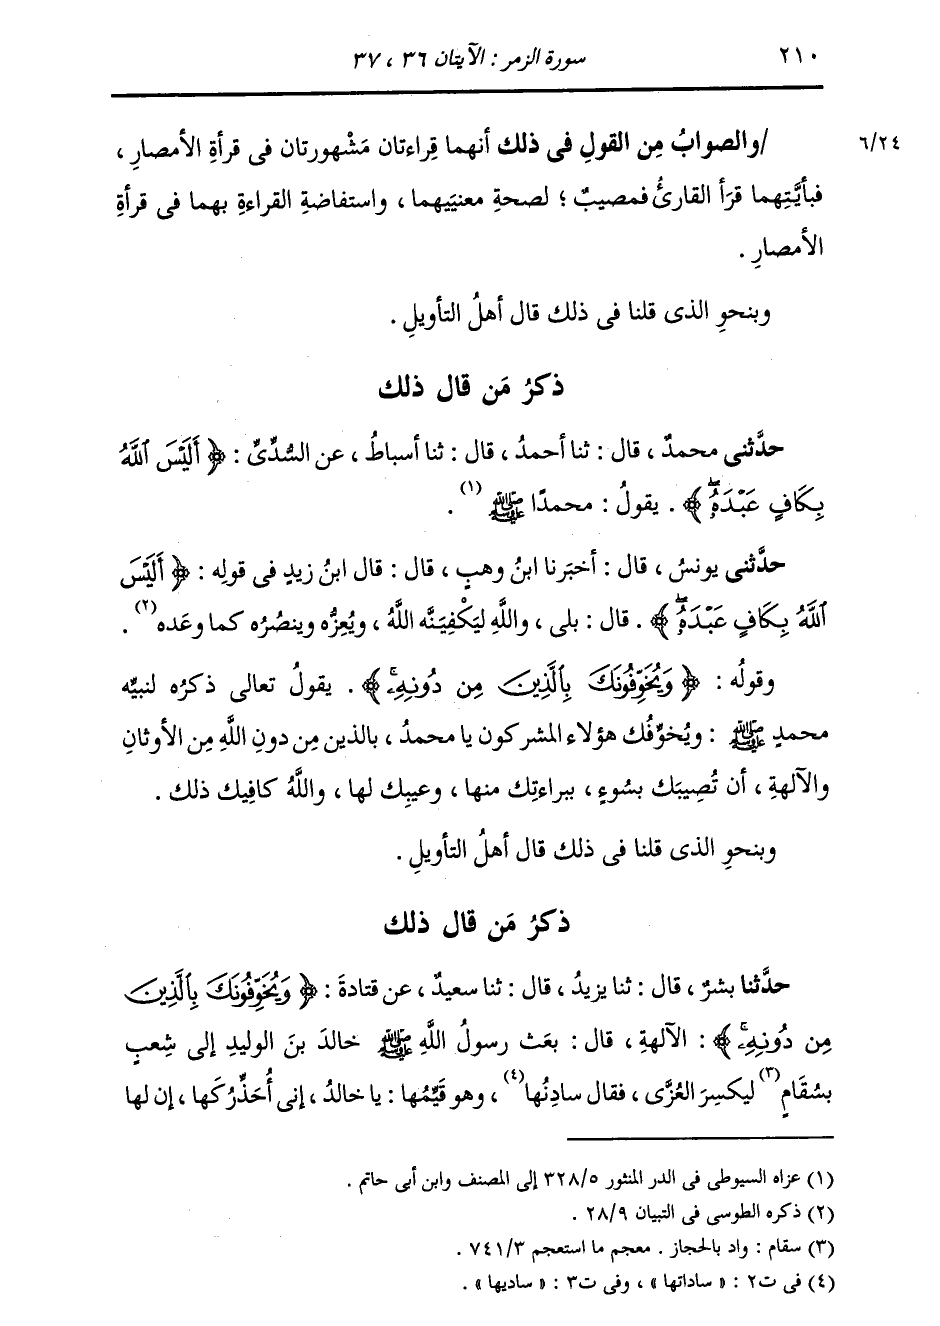 ٢١٠ سورة الزمر : الآيتان ٣٦ ، ٣٧
٦/٢٤ /والصوابُ مِن القولِ فى ذلك أنهما قِراءتان مَشْهورتان فى قرأةِ الأمصارِ ،
فبأيَّتِهما قرَأ القارئُ فمصيبٌ ؛ لصحةِ معنيَيهما ، واستفاضةِ القراءةِ بهما فى قرأةِ
الأمصارِ .
وبنحوِ الذى قلنا فى ذلك قال أهلُ التأويلِ .
ذكرُ مَن قال ذلك
حدَّثنى محمدٌ ، قال : ثنا أحمدُ ، قال : ثنا أسباطُ ، عن السُّدِّىِّ : ﴿ أَلَيْسَ ٱللَّهُ
بِكَافٍ عَبْدَهُۥۖ ﴾ . يقولُ : محمدًا ﷺ (١) .
حدَّثنى يونسُ ، قال : أخبَرنا ابنُ وهبٍ ، قال : قال ابنُ زيدٍ فى قولِه : ﴿ أَلَيْسَ
ٱللَّهُ بِكَافٍ عَبْدَهُۥۖ ﴾ . قال : بلى ، واللَّهِ ليَكْفِيَنَّه اللَّهُ ، ويُعِزُّه وينصُرُه كما وعَده (٢) .
وقولُه : ﴿ وَيُخَوِّفُونَكَ بِٱلَّذِينَ مِن دُونِهِۦۚ ﴾ . يقولُ تعالى ذكرُه لنبيِّه
محمدٍ ﷺ : ويُخوِّفُك هؤلاء المشركون يا محمدُ ، بالذين مِن دونِ اللَّهِ مِن الأوثانِ
والآلهةِ ، أن تُصِيبَك بسُوءٍ ، ببراءتِك منها ، وعيبِك لها ، واللَّهُ كافِيك ذلك .
وبنحوِ الذى قلنا فى ذلك قال أهلُ التأويلِ .
ذكرُ مَن قال ذلك
حدَّثنا بشرٌ ، قال : ثنا يزيدُ ، قال : ثنا سعيدٌ ، عن قتادةَ : ﴿ وَيُخَوِّفُونَكَ بِٱلَّذِينَ
مِن دُونِهِۦۚ ﴾ : الآلهةِ ، قال : بعَث رسولُ اللَّهِ ﷺ خالدَ بنَ الوليدِ إلى شِعبٍ
بسُقَامٍ (٣) ليكسِرَ العُزَّى ، فقال سادِنُها (٤) ، وهو قَيِّمُها : يا خالدُ ، إنى أُحَذِّرُكَها ، إن لها
(١) عزاه السيوطى فى الدر المنثور ٣٢٨/٥ إلى المصنف وابن أبى حاتم .
(٢) ذكره الطوسى فى التبيان ٢٨/٩ .
(٣) سقام : واد بالحجاز . معجم ما استعجم ٧٤١/٣ .
(٤) فى ت٢ : « ساداتها » ، وفى ت٣ : « ساديها » .